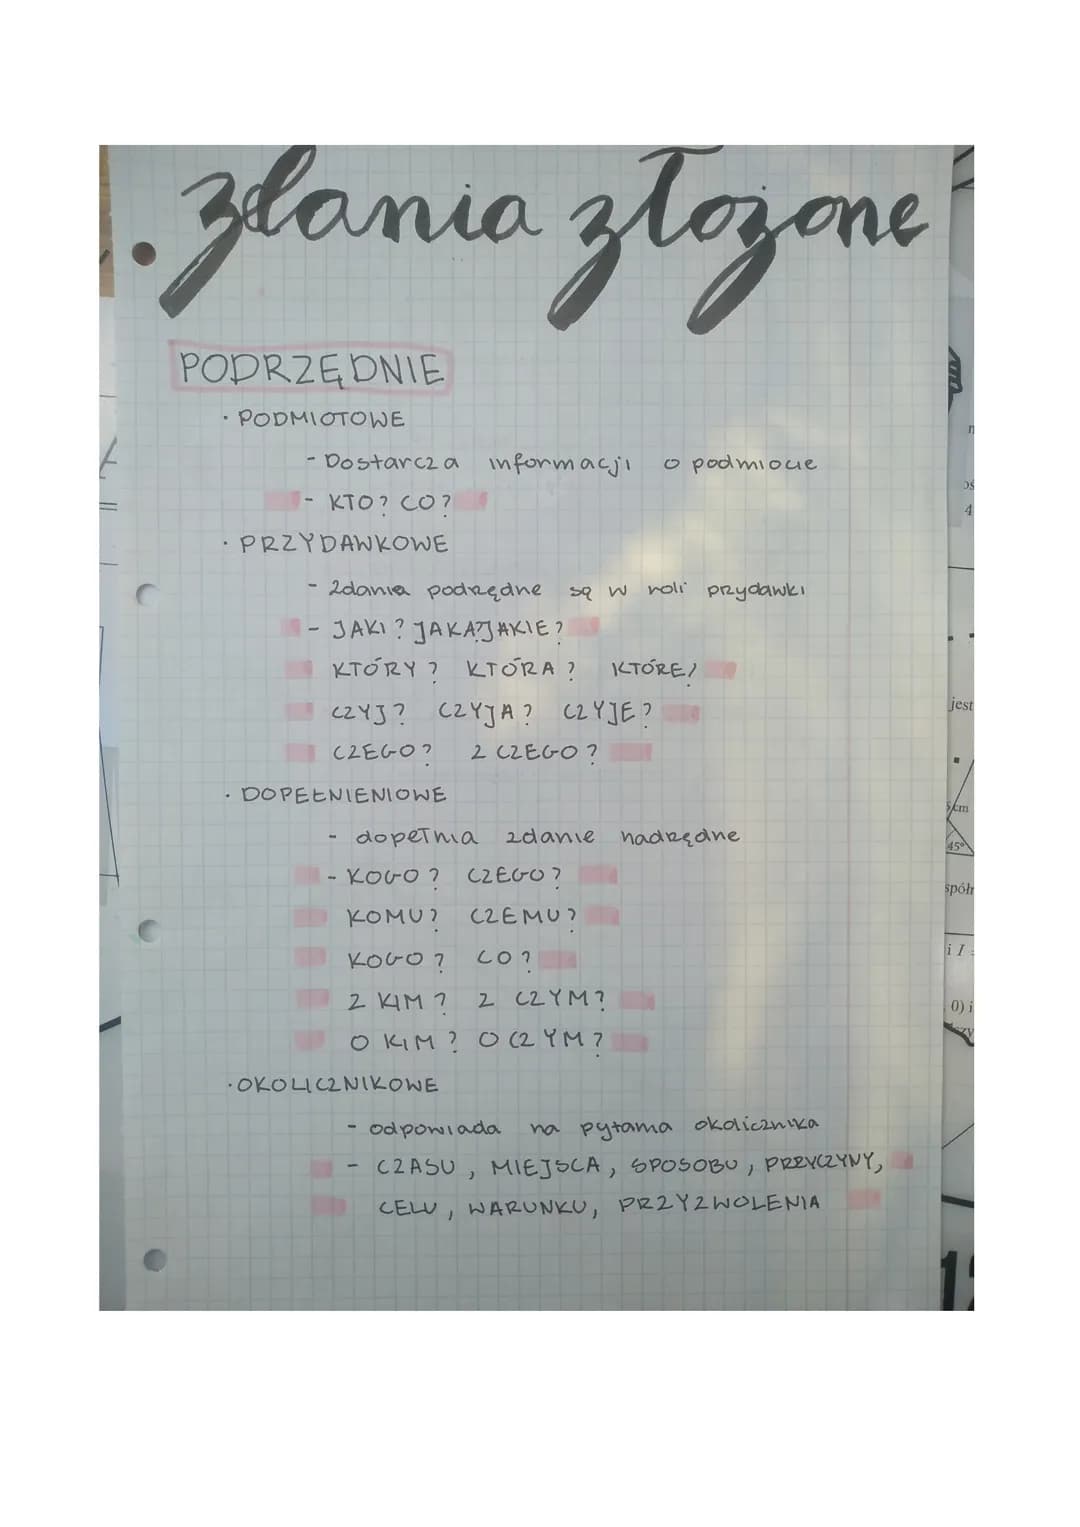 zdania złożone
PODRZĘDNIE
· PODMIOTOWE
- Dostarcza informacji o podmiocie
- KTO? CO?
· PRZYDAWKOWE
- Zdania podrzędne są w roli przydawki
- JAKI? JAKA? JAKIE?
KTÓRY? KTÓRA? KTÓRE?
CZYJ? CZYJA? CZYJE?
CZEGO? Z CZEGO?
· DOPEŁNIENIOWE
- dopełnia zdanie nadrzędne
- KOGO? CZEGO?
KOMU? CZEMU?
KOGO? CO?
Z KIM? Z CZYM?
O KIM? O CZYM?
· OKOLICZNIKOWE
- odpowiada na pytania okolicznika
- CZASU, MIEJSCA, SPOSOBU, PRZYCZYNY,
CELU, WARUNKU, PRZYZWOLENIA
jest
cm
45°
i I
0) i